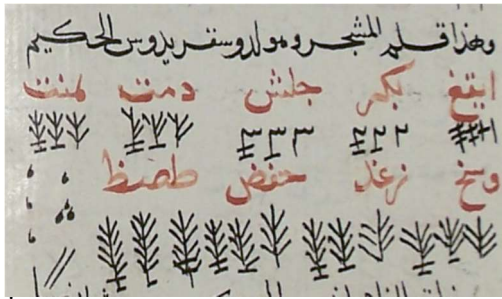 وهذا قلم المشجر وهو لدوسقريدوس الحكيم
ايقغ بكر جلش دمت هنث
وسخ زعذ حفض طصظ